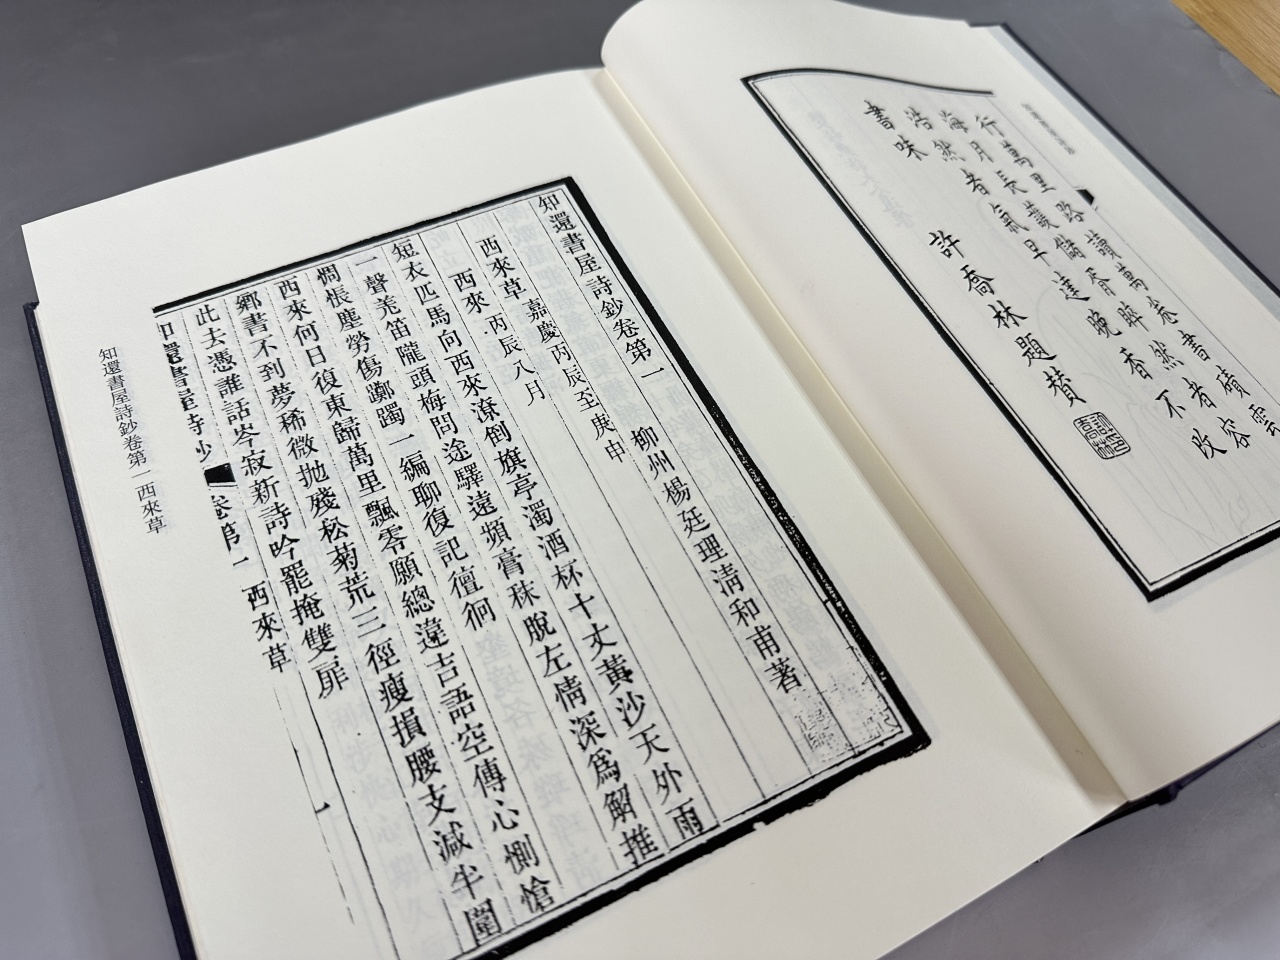 行萬里路讀萬卷書積雲
海月長養儲胥晬然者容
浩然者氣早達晚香不改
書味
許喬林題贊
知還書屋詩鈔卷第一
柳州楊廷理清和甫著
西來草 嘉慶丙辰至庚申
西來 丙辰八月
短衣匹馬向西來潦倒旗亭濁酒杯十丈黃沙天外雨
一聲羌笛隴頭梅問途驛遠頻膏秣脫左情深爲解推
惆悵塵勞傷躑躅一編聊復記儃徊
西來何日復東歸萬里飄零願總違吉語空傳心惻愴
鄉書不到夢稀微拋殘松菊荒三徑瘦損腰支減半圍
此去憑誰話岑寂新詩吟罷掩雙扉
知還書屋詩鈔 卷第一 西來草 一
知還書屋詩鈔卷第一 西來草